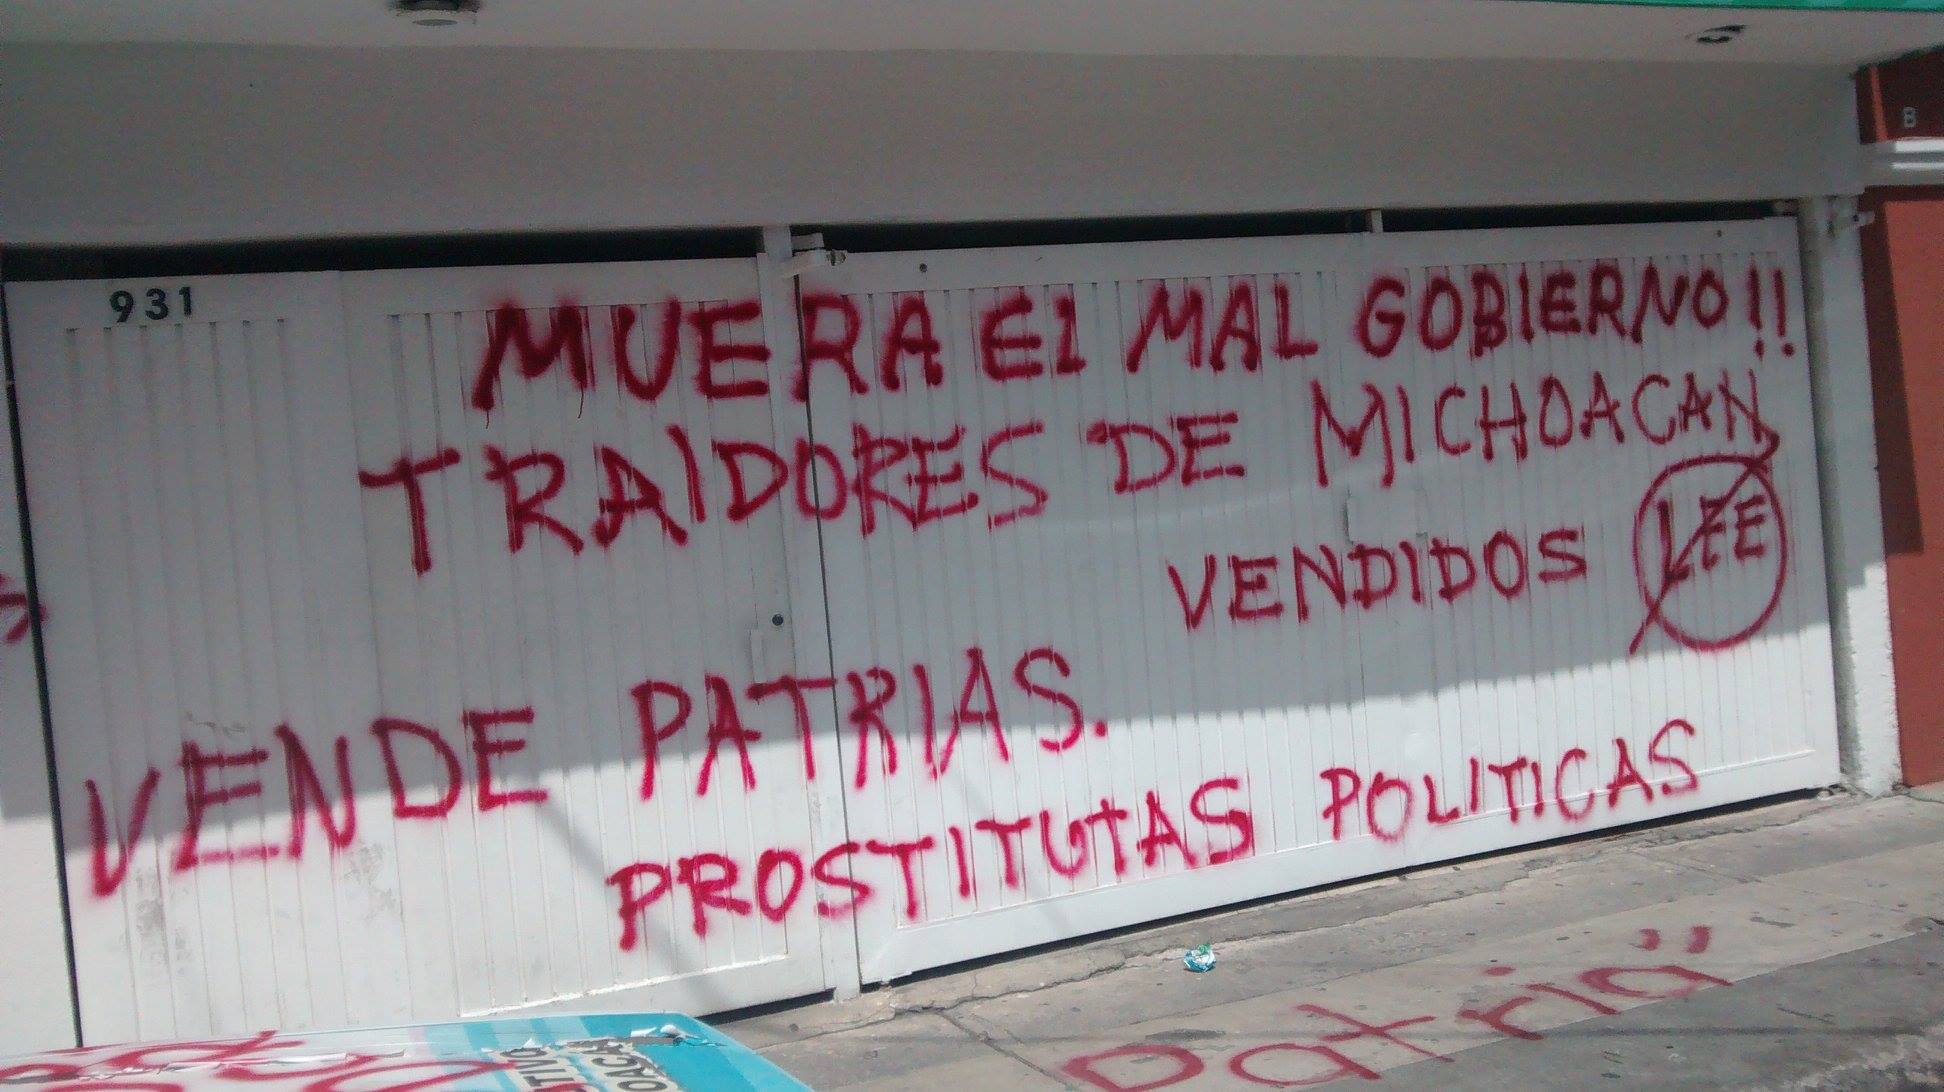 931
B
MUERA El MAL GOBIERNO!!
TRAIDORES DE MICHOACAN
VENDIDOS LEE
VENDE PATRIAS.
PROSTITUTAS POLITICAS
Patria